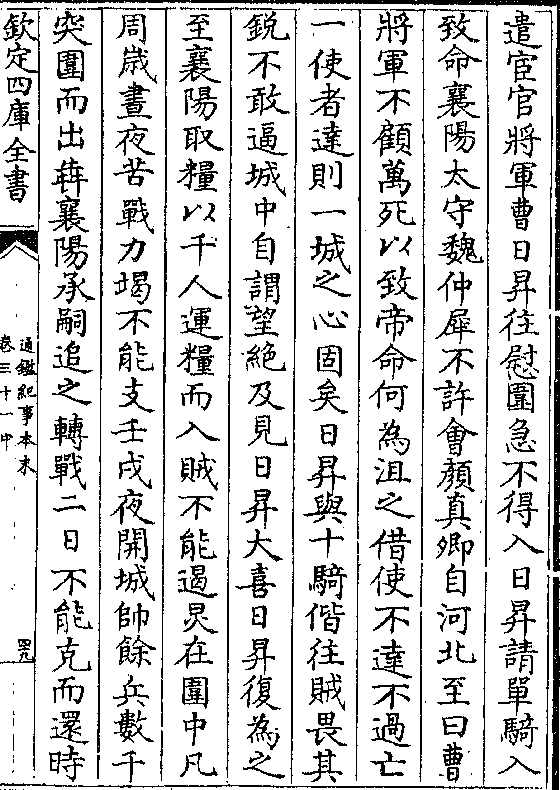 遣宦官將軍曹日昇往慰圍急不得入日昇請單騎入
致命襄陽太守魏仲犀不許會顔真卿自河北至曰曹
將軍不顧萬死以致帝命何為沮之借使不達不過亡
一使者達則一城之心固矣日昇與十騎偕往賊畏其
鋭不敢逼城中自謂望絶及見日昇大喜日昇復為之
至襄陽取糧以千人運糧而入賊不能遏炅在圍中凡
周歲晝夜苦戰力竭不能支壬戌夜開城帥餘兵數千
突圍而出犇襄陽承嗣追之轉戰二日不能克而還時
欽定四庫全書
通鑑紀事本末
卷三十一中
四九